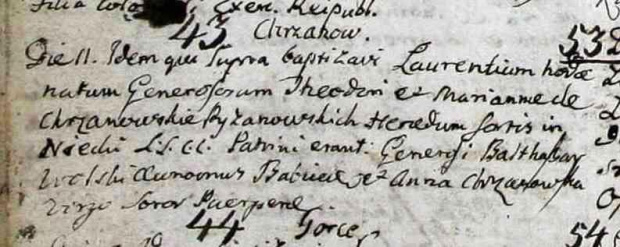 Filia Exem. Reipubl.
43 Chrzanow. 532
Die 11. Idem qui supra baptizavi Laurentium hodie
natum Generosorum Theodori et Mariannae de
Chrzanowskie Ryzanowskich Heredum sortis in
L.S.C.C. Patrini erant Generosi Balthasar
Wolski Oeconomus et Anna Chrzanowska
Virgo Soror Puerperae
44 Gorce 54